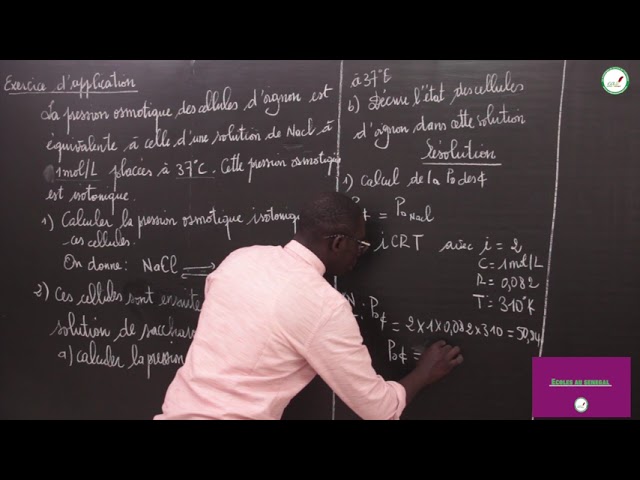 Exercice d'application
La pression osmotique des cellules d'agnon est
équivalente à celle d'une solution de NaCl à
1mol/L placées à 37°C. Cette pression osmotique
est isotonique.
1) Calculer la pression osmotique isotonique
ces cellules.
On donne: NaCl
2) Ces cellules sont ensuite
solution de saccharo
a) calculer la pression
à 37°E
b) Décrire l'état des cellules
d'agnon dans cette solution
Résolution
1) Calcul de la Po des ¢
= Po NaCl
iCRT avec i = 2
C = 1mol/L
R = 0,082
T = 310°K
N: Po¢ = 2x1x0,082x310 = 50,84
Po¢ =
ECOLES AU SENEGAL